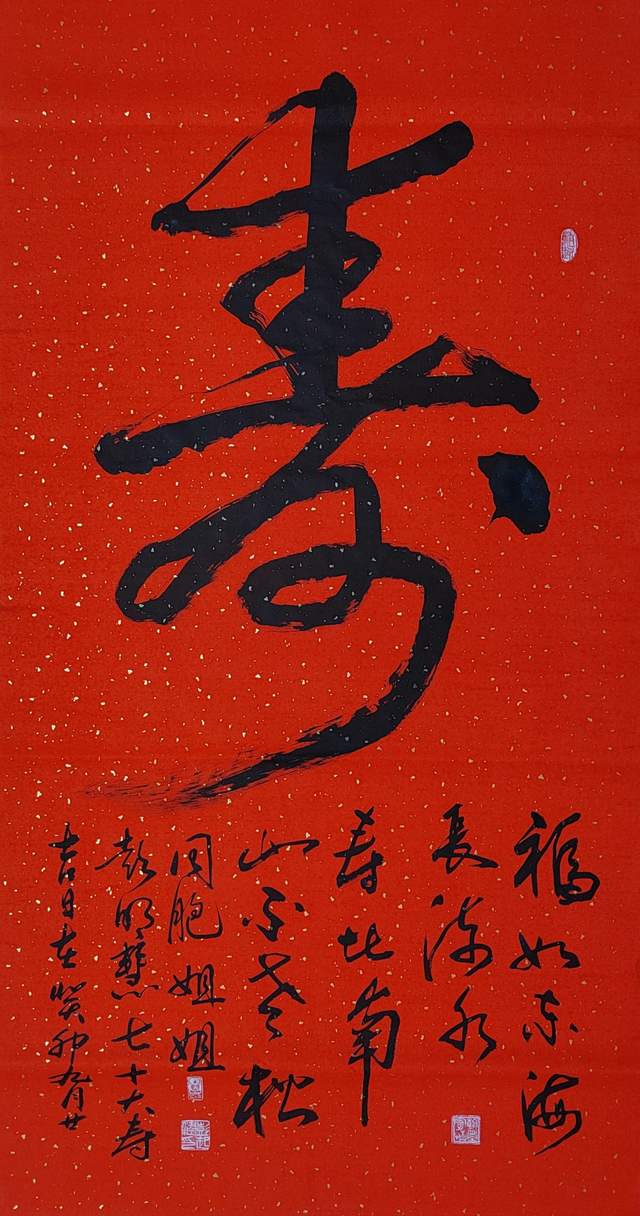 寿
福如东海
长流水
寿比南
山不老松
同胞姐姐
彭明慧七十大寿
吉日在癸卯九月廿